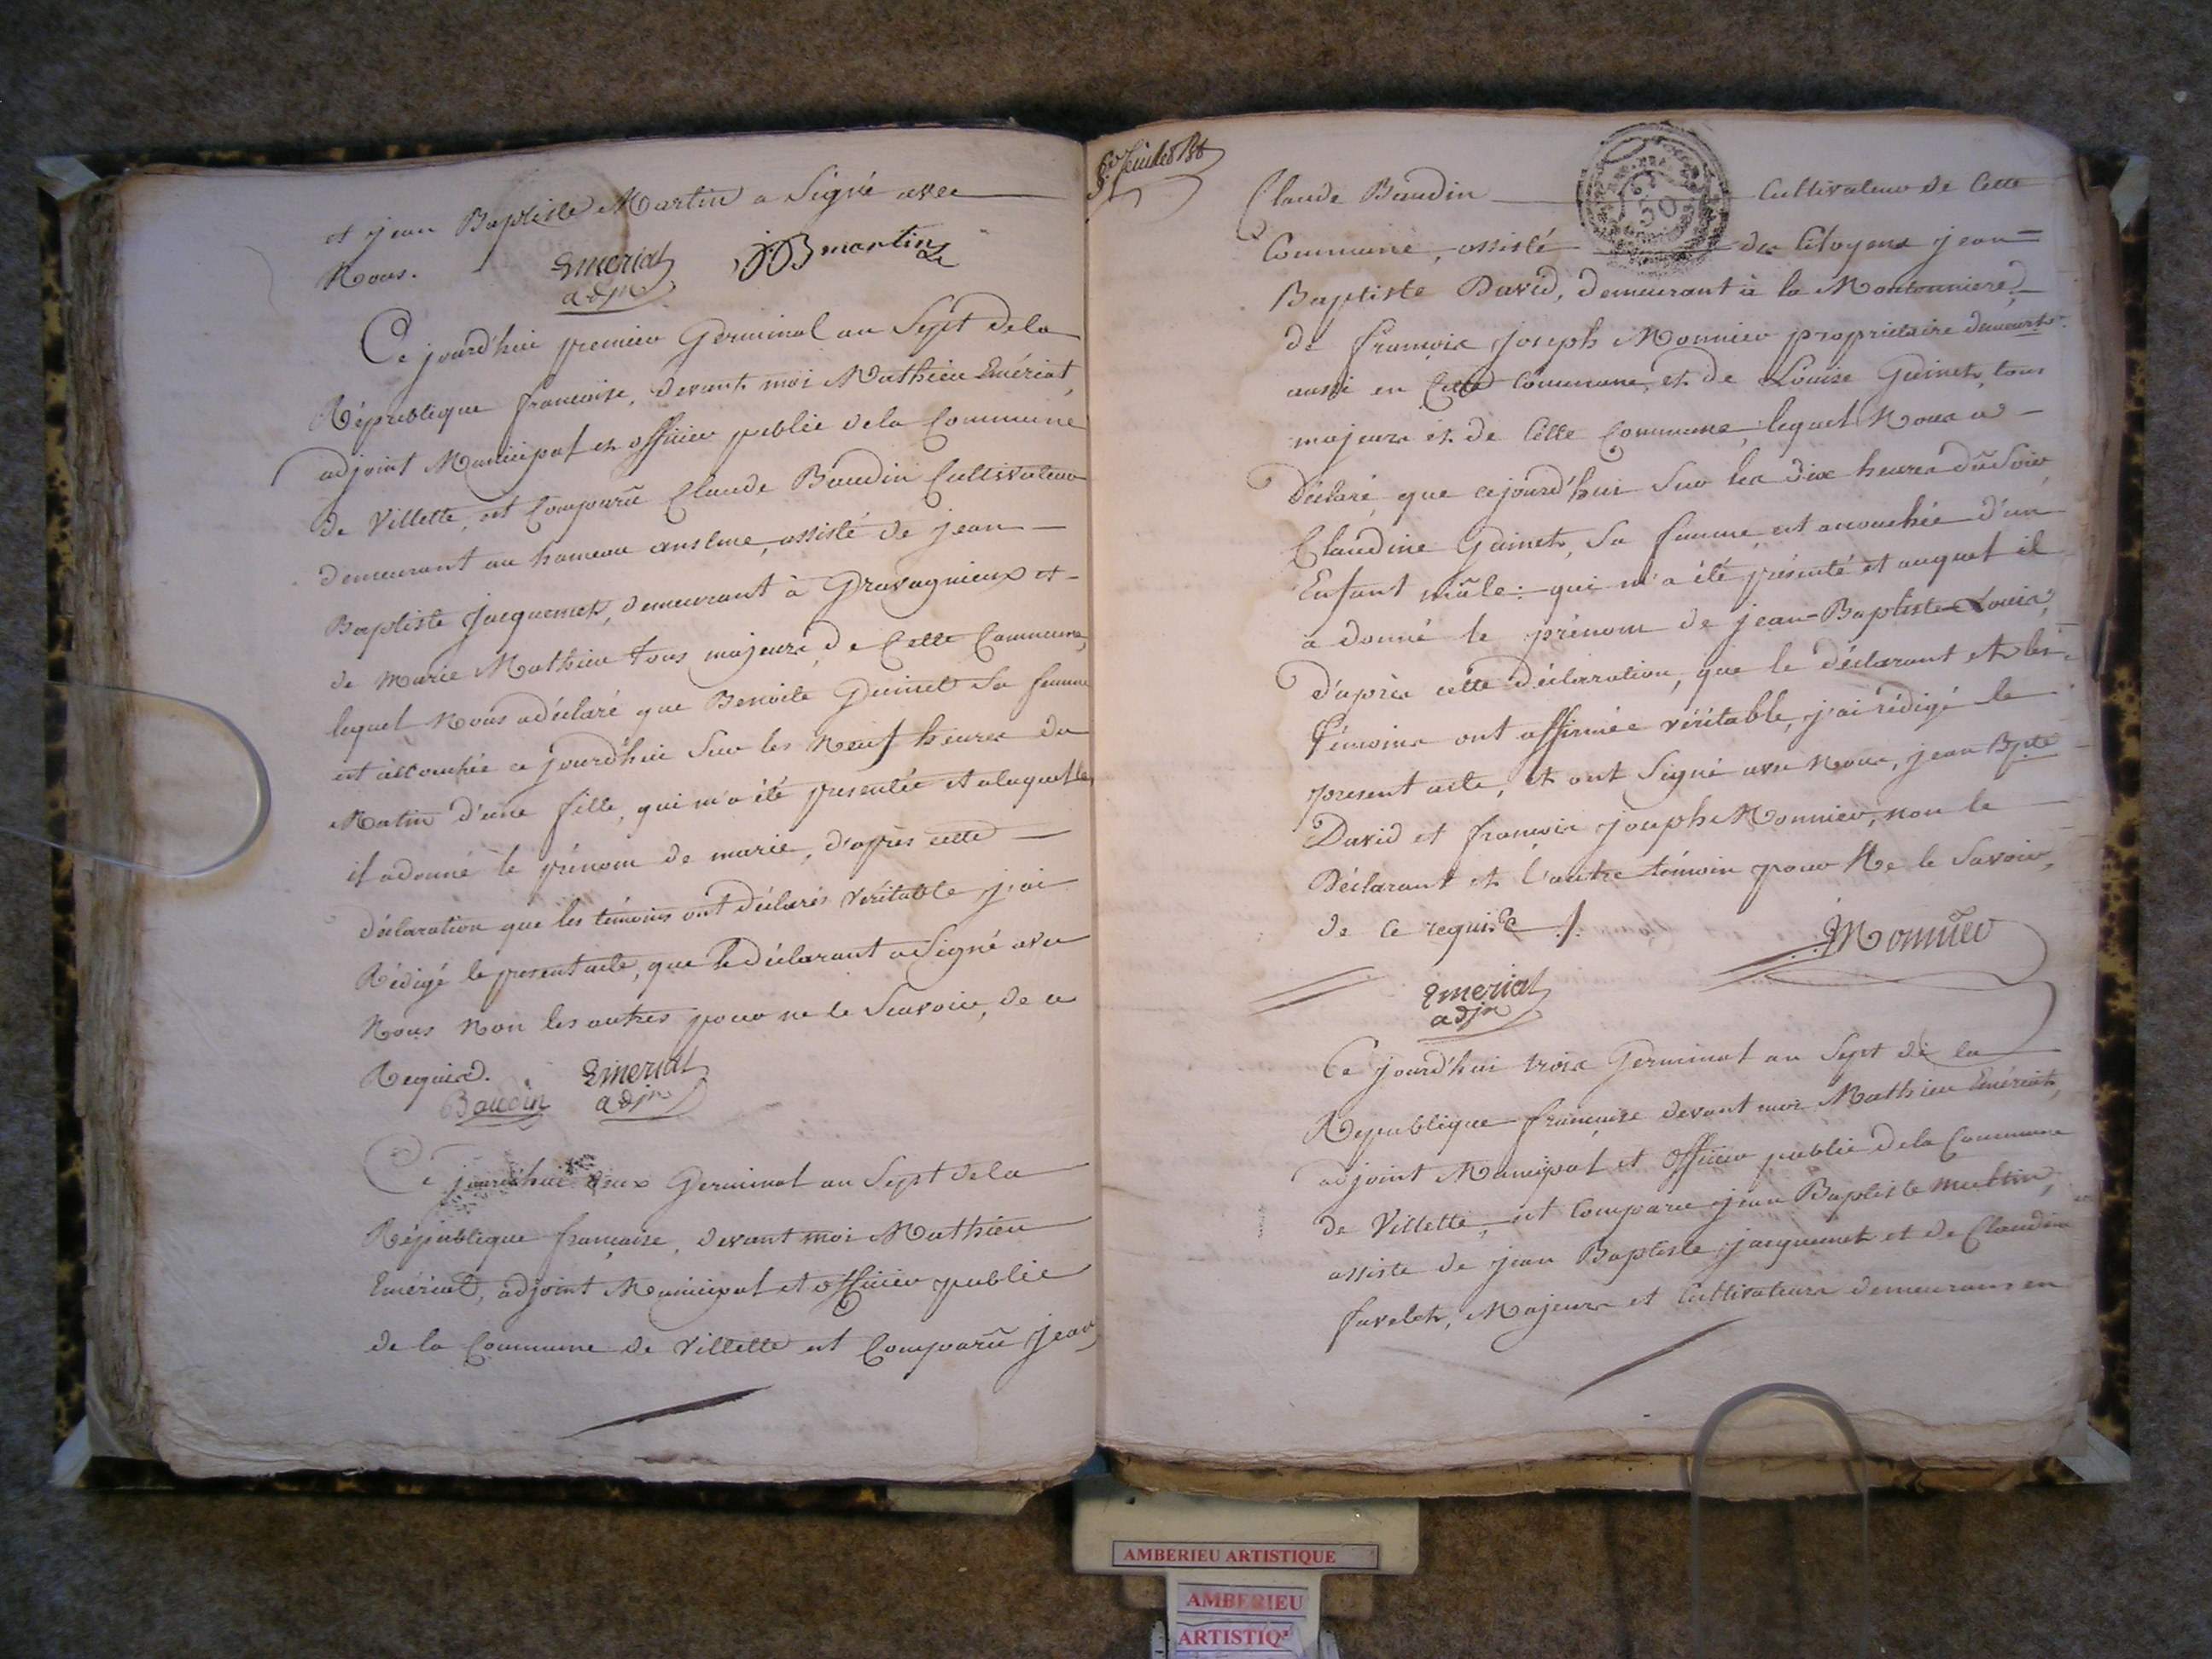 et jean Baptiste Martin a Signé avec
Nous.
Emeriat
adjt
JB martin
Ce jourd'hui premier Germinal an Sept de la
République francaise, devant moi Mathieu Emériat,
adjoint Municipal et officier public de la Commune
de Villette, est Comparû Claude Baudin Cultivateur
demeurant au hameau anselme, assisté de jean
Baptiste Jacquemet, demeurant à Gravagnieux et
de marie Mathieu tous majeurs, de Cette Commune,
lequel Nous a déclaré que Benoite Guinet Sa femme
est accouchée ce jourd'hui Sur les Neuf heures du
Matin d'une fille, qui m'a été presentée et a laquelle
il a donné le prénom de marie, d'après cette
déclaration que les témoins ont déclarés Véritable j'ai
Rédigé le present acte, que le déclarant a Signé avec
Nous Non les autres pour ne le Scavoir, de ce
Requis.
Baudin
Emeriat
adjt
Ce jourd'hui deux Germinal an Sept de la
République francaise, devant moi Mathieu
Emériat, adjoint Municipal et officier public
de la Commune de Villette est Comparû Jean
Claude Baudin Cultivateur de Cette
Commune, assisté des Citoyens jean=
Baptiste David, demeurant à la Montonniere,
de francois Joseph Monnier propriétaire demeurt
aussi en Cette Commune, et de Louise Guinet, tous
majeurs et de Cette Commune, lequel Nous a
Déclaré, que cejourd'hui Sur les dix heures du Soir
Claudine Guinet, Sa femme est accouchée d'un
Enfant mâle: qui m'a été présenté et auquel il
a donné le prénom de jean-Baptiste-Louis,
D'après cette déclaration, que le déclarant et les
témoins ont affirmée véritable, j'ai rédigé le
present acte, et ont Signé avec Nous, jean Bpte
David et francois joseph Monnier, non le
Déclarant et l'autre témoin pour Ne le Savoir,
de ce requise ./.
Monnier
Emeriat
adjt
Ce jourd'hui trois Germinal an Sept de la
Republique francaise devant moi Mathieu Emériat,
adjoint Municipal et Officier public de la Commune
de Villette, est Comparu jean Baptiste Martin,
assiste de jean Baptiste jacquemet et de Claudine
favelet, Majeurs et Cultivateurs demeurans en
AMBERIEU ARTISTIQUE
AMBERIEU
ARTISTIQ